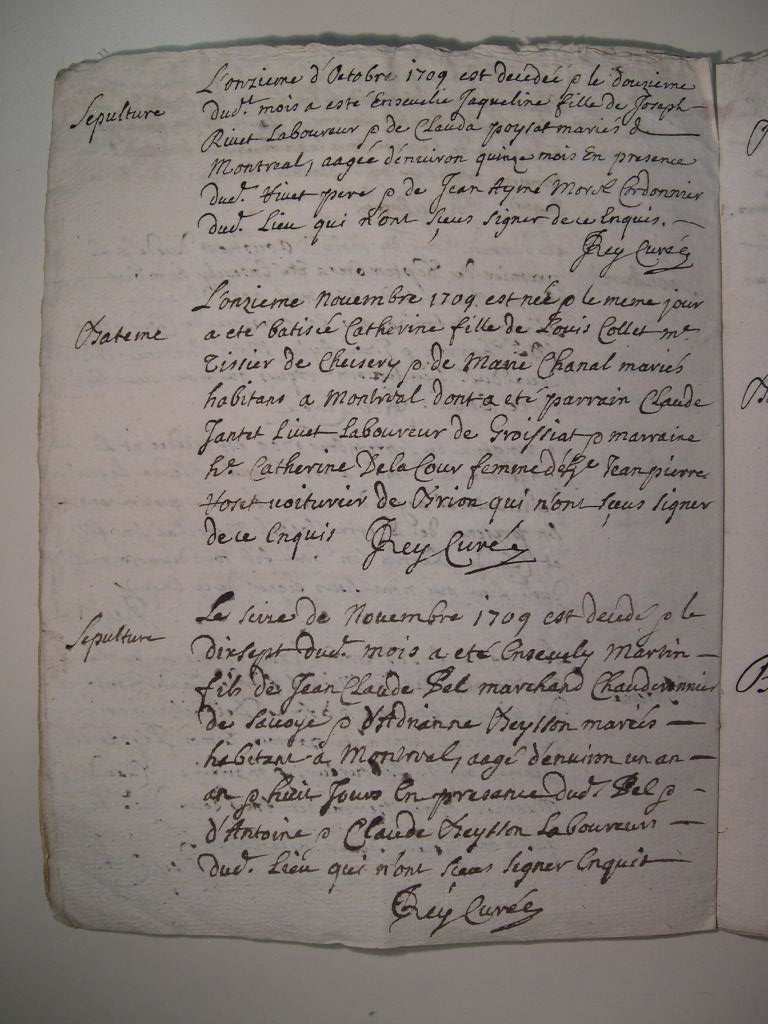 Sepulture
L'onzieme d'Octobre 1709 est decedée & le douzieme
dud. mois a esté Ensevelie Jaqueline fille de Joseph
Rivet Laboureur & de Clauda poysat mariés de
Montreal, aagée d'environ quinze mois En presence
dud. Rivet pere & de Jean Aymé Cordonnier
dud. Lieu qui n'ont sçeus signer de ce Enquis.
Rey Curé
Bateme
L'onzieme Novembre 1709 est née & le meme jour
a eté batisée Catherine fille de Louis Collet me
Tissier de Cheisery & de Marie Chanal mariés
habitans a Montreal dont a eté parrain Claude
Jantet Laboureur de Groissiat & marraine
he. Catherine De la Cour femme Jean pierre
voiturier de Brion qui n'ont sçeus signer
de ce Enquis Rey Curé
Sepulture
Le seize de Novembre 1709 est decedé & le
dixsept dud. mois a eté Ensevely Martin
fils de Jean Claude Bel marchand Chaudronnier
de Savoye & d'Adrianne Reysson mariés
habitant à Montreal, aagé d'environ un an
an & huit Jours En presance dud. Bel &
d'Antoine & Claude Reysson Laboureurs
dud. Lieu qui n'ont sceus signer Enquis
Rey Curé